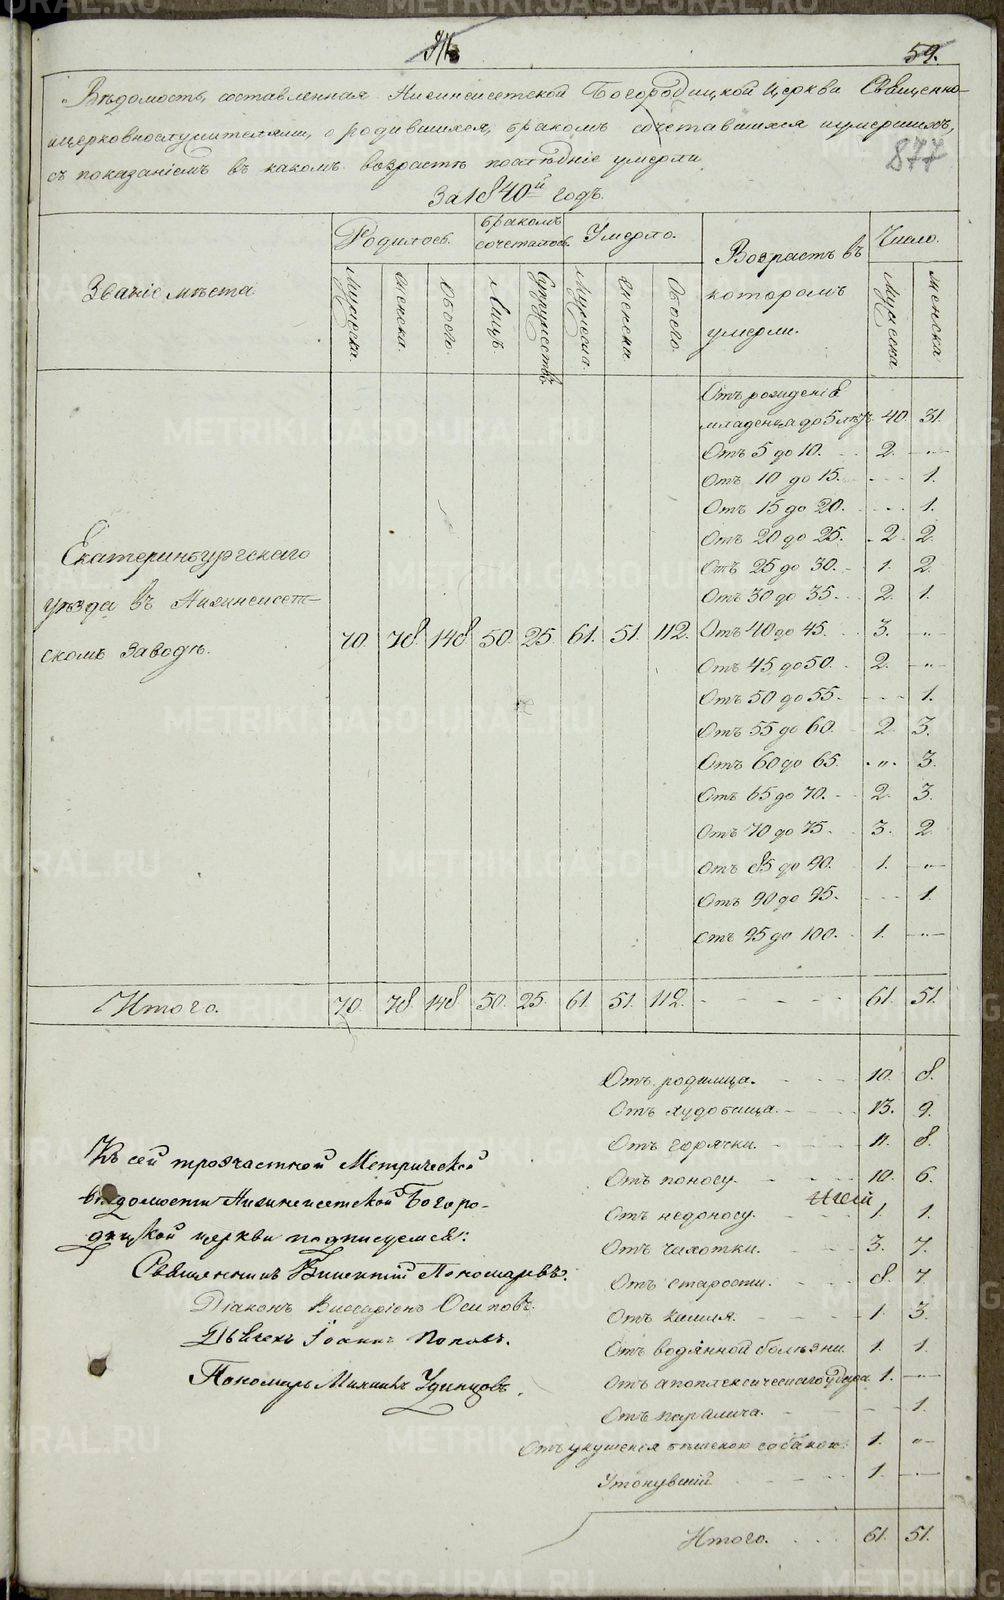 59.
Вѣдомость, составленная Нижнеисетской Богородицкой Церкви Священно-
ицерковнослужителями, о родившихся, бракомъ сочетавшихся иумершихъ,
съ показаніемъ въ какомъ возрастѣ послѣдніе умерли
877
За 1840й годъ.
Званіе мѣста
Родилось.
бракомъ сочеталось.
Умерло.
Возрастъ въ которомъ умерли.
Число.
Мужеска. женска. Обоего. Лицъ. Супружествъ Мужеска. женска Обоего. Мужеска женска
Отъ рожденія
младенца до 5 лѣтъ 40. 31.
Отъ 5 до 10. 2. -"-
Отъ 10 до 15. - - - 1.
Отъ 15 до 20. - - - 1.
Отъ 20 до 25. 2. 2.
Отъ 25 до 30. 1. 2.
Отъ 30 до 35. 2. 1.
Екатеринбургскаго
уѣзда въ Нижнеисет-
скомъ Заводѣ. 70. 78. 148. 50. 25. 61. 51. 112. Отъ 40 до 45. 3. -"-
Отъ 45 до 50. 2. -"-
Отъ 50 до 55. - - - 1.
Отъ 55 до 60. 2. 3.
Отъ 60 до 65. -"- 3.
Отъ 65 до 70. 2. 3.
Отъ 70 до 75. 3. 2.
Отъ 85 до 90. 1. -"-
Отъ 90 до 95. - - - 1.
Отъ 95 до 100. 1. -"-
Итого. 70. 78. 148. 50. 25. 61. 51. 112. - - - - - 61. 51.
Отъ родимца. 10. 8.
Отъ худобища. 13. 9.
Отъ горячки. 11. 8.
Отъ поносу. 10. 6.
Отъ недоносу. 1. 1.
Отъ чахотки. 3. 7.
Отъ старости. 8. 7.
Отъ кашля. 1. 3.
Отъ водянной болѣзни 1. 1.
Отъ апоплексическаго удара 1. -"-
Отъ паралича. - - 1.
Отъ укушенія бѣшеною собакою. 1. -"-
Утонувшій 1. -"-
Итого. 61. 51.
Къ сей троячастной Метрической
вѣдомости Нижнеисетской Богоро-
дицкой церкви подписуемся:
Священникъ Викентій Пономаревъ.
Діаконъ Виссаріонъ Осиповъ.
Дьячекъ Іоаннъ Поповъ.
Пономарь Михаилъ Удинцовъ.
METRIKI.GASO-URAL.RU